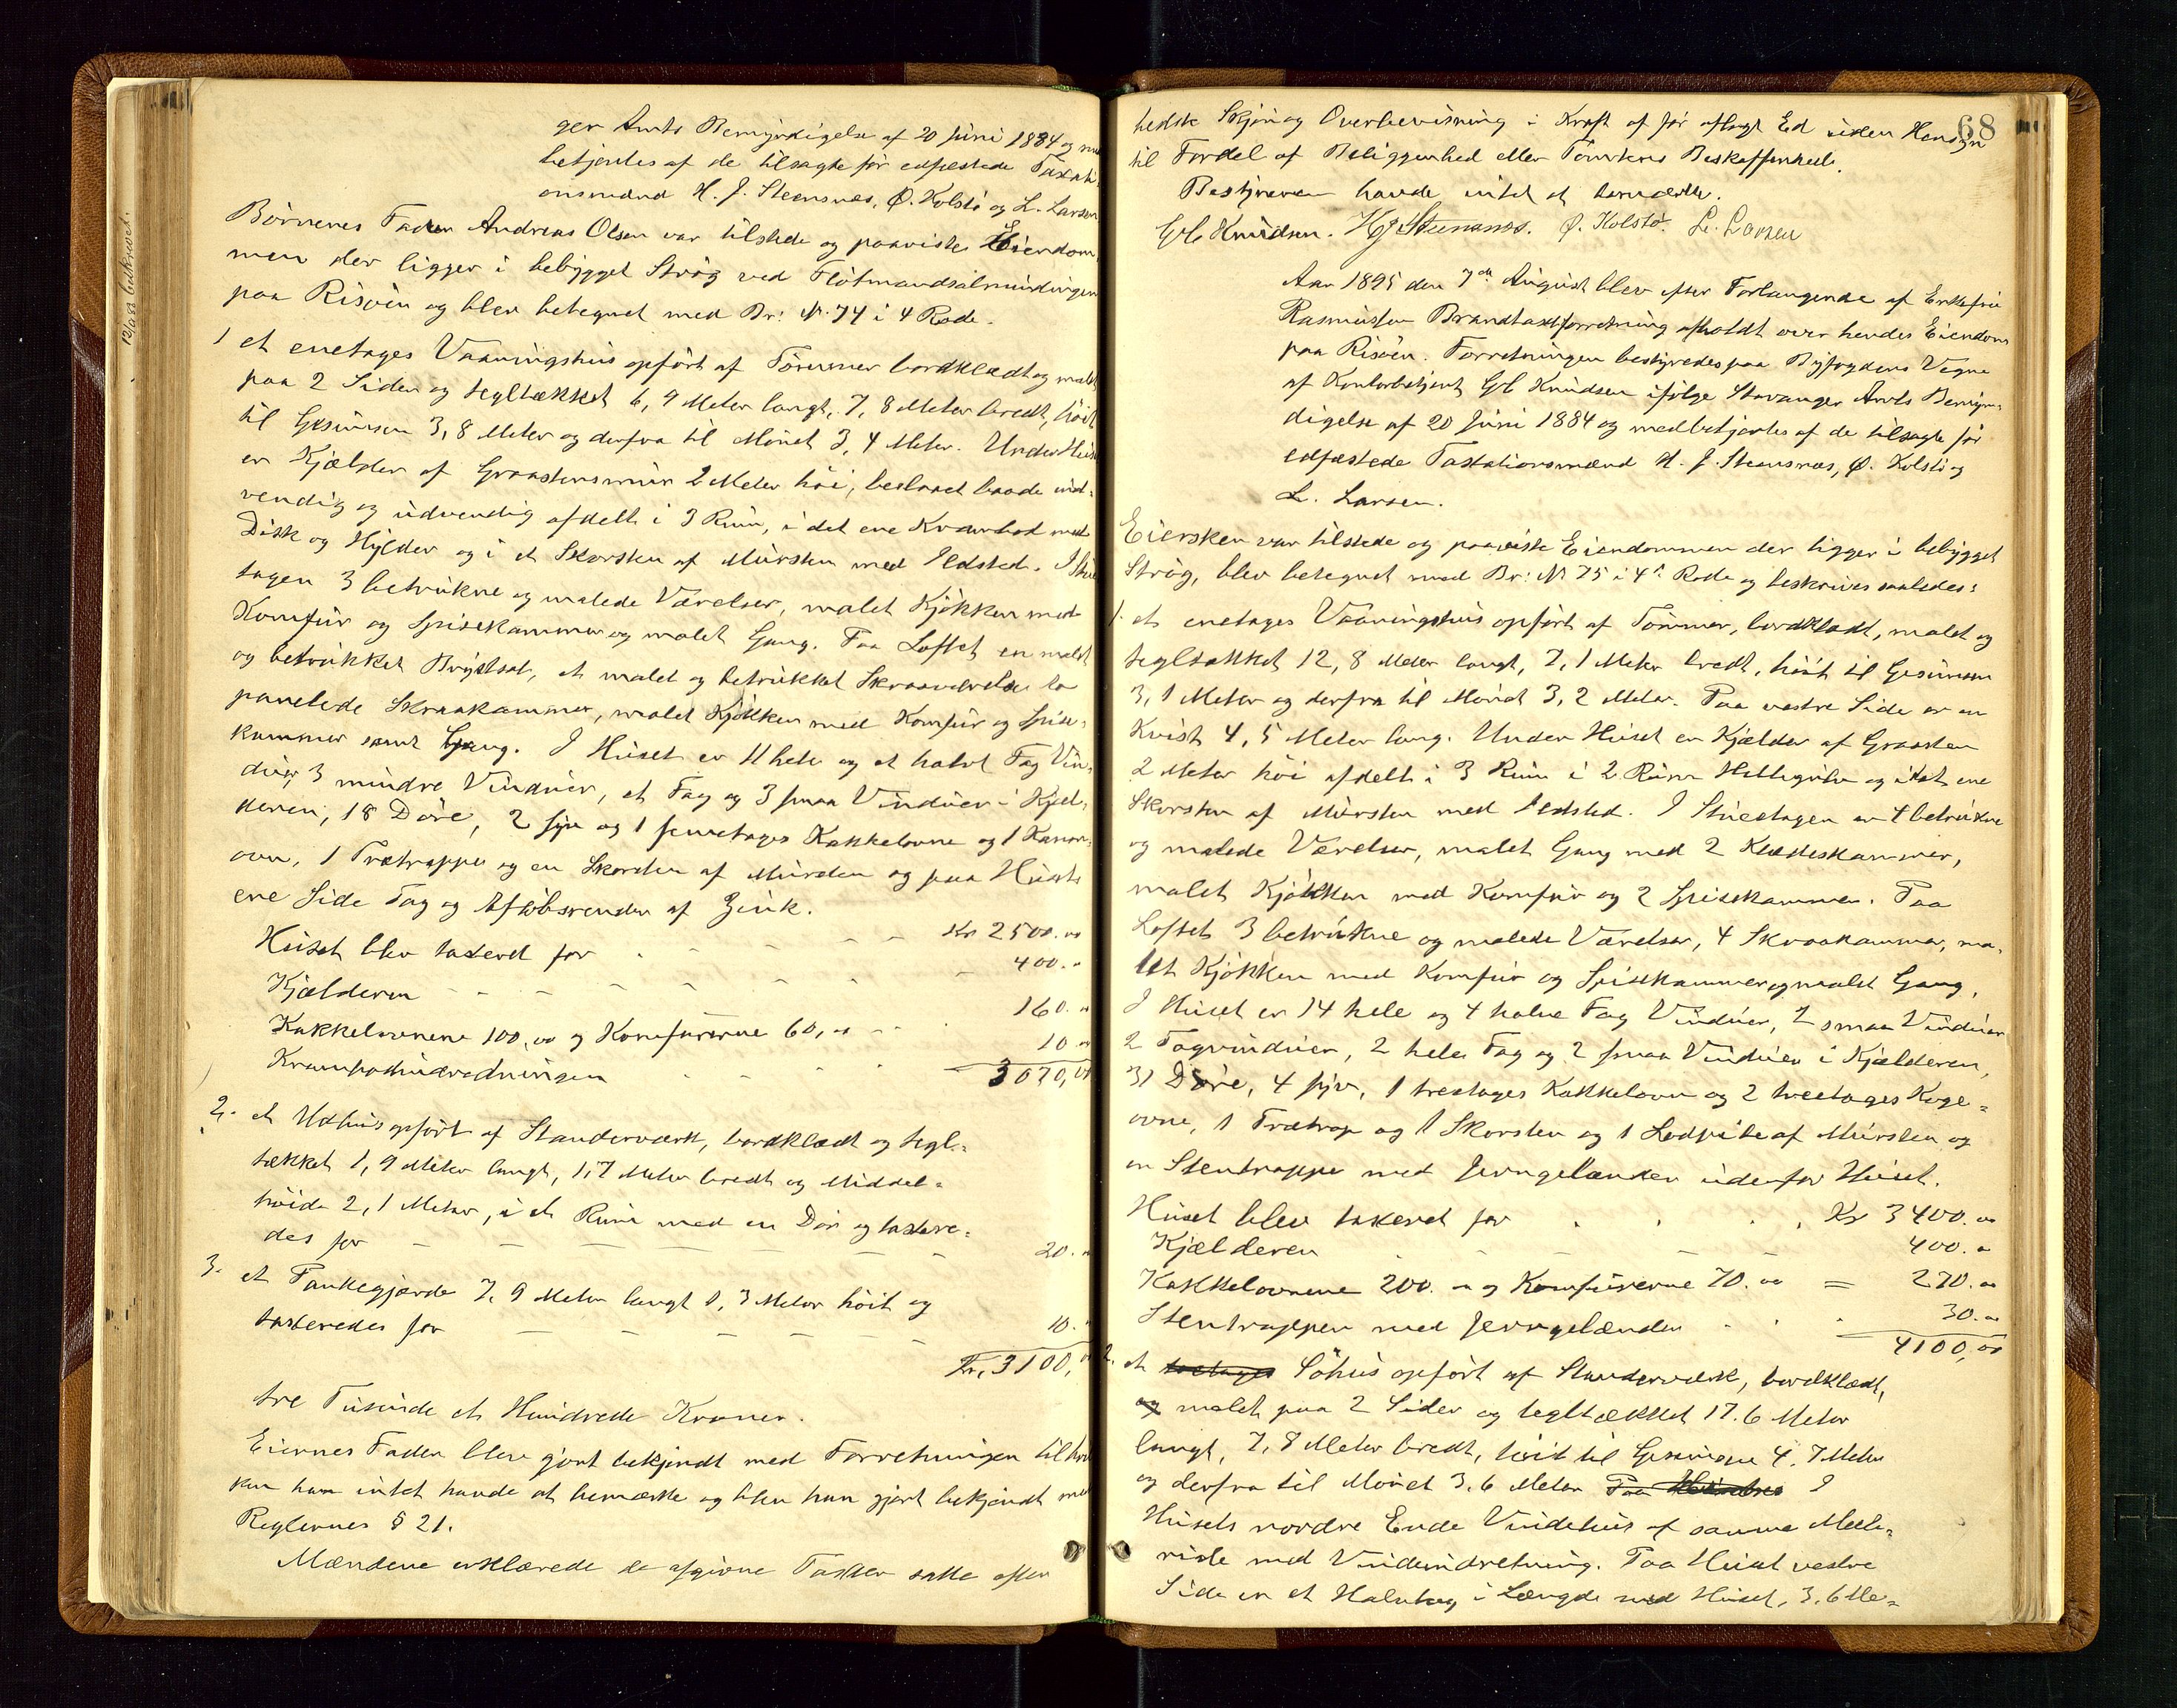 12/10 83 beskreset.
ger Amts Bemyndigelse af 20 Juni 1884 og med
betjentes af de tilsagte før edfæstede Taxati-
onsmænd H. J. Steensnæs, Ø. Kolstø og L. Larsen
Børnenes Fader Andreas Olsen var tilstede og paaviste Eiendom-
men der ligger i bebygget Strøg ved Fløtmandsalmindingen
paa Risøen og blev betegnet med Br: No 74 i 4 Rode.
1 et enetages Vaaningshus opført af Tømmer bordklædt og malet
paa 2 Sider og tegltækket 6,9 Meter langt, 7,8 Meter bredt, høit
til Gesimsen 3,8 Meter og derfra til Mønet 3,4 Meter. Under Huset
er Kjælder af Graastensmur 2 Meter høi, beslaaet baade ind-
vendig og udvendig afdelt i 3 Rum, i det ene Krambod med
Disk og Hylder og i et Skorsten af Mursten med Ildsted. I Stue
tagen 3 betrukne og malede Værelser, malet Kjøkken med
Komfur og Spisekammer og malet Gang. Paa Loftet en malet
og betrukket Brystsal, et malet og betrukket Skraaværelse to
panelede Skraakammer, malet Kjøkken med Komfur og Spise-
kammer samt Gang. I Huset er 11 hele og et halvt Fag Vin-
duer, 3 mindre Vinduer, et Fag og 3 smaa Vinduer i Kjæl-
deren, 18 Døre, 2 fyr og 1 femetages Kakkelovne og 1 Kanon-
ovn, 1 Trætrappe og en Skorsten af Mursten og paa Husets
ene Side Tag og Afløbsrender af Zink.
Huset blev taxeret for Kr 2500.00
Kjælderen 400.00
Kakkelovnene 100,00 og Komfurerne 60,00 160.00
Krambodindredningen 10.00
3070,00
2. et Udhus opført af Standerværk, bordklædt og tegl-
tækket 1,9 Meter langt, 1,7 Meter bredt og Middel-
høide 2,1 Meter, i et Rum med en Dør og taxere-
des for 20.00
3. et Plankegjærde 7,9 Meter langt 1,3 Meter høit og
taxeredes for 10.00
Kr. 3100,00
tre Tusinde et Hundrede Kroner.
Eiernes Fader blev gjort bekjendt med Forretningen til hvil
ken han intet havde at bemærke og blev han gjort bekjendt med
Reglernes § 21.
Mændene erklærede de afgivne Taxter satte efter
68
bedste Skjøn og Overbevisning i Kraft af før aflagt Ed uden Hensyn
til Fordel af Beliggenhed eller Tomtens Beskaffenhed.
Bestyreren havde intet at bemærke.
Gb Knudsen. HJ Steensnæs. Ø. Kolstø. L. Larsen
Aar 1895 den 7de August blev efter Forlangende af Enkefru
Rasmussen Brandtaxtforretning afholdt over hendes Eiendom
paa Risøen. Forretningen bestyredes paa Byfogdens Vegne
af Kontorbetjent Gb Knudsen ifølge Stavanger Amts Bemyn-
digelse af 20 Juni 1884 og medbetjentes af de tilsagte før
edfæstede Taxtationsmænd H. J. Steensnæs, Ø. Kolstø og
L. Larsen.
Eiersken var tilstede og paaviste Eiendommen der ligger i bebygget
Strøg, blev betegnet med Br: No 75 i 4de Rode og beskrives saaledes:
1. et enetages Vaaningshus opført af Tømmer, bordklædt, malet og
tegltækket 12,8 Meter langt, 7,1 Meter bredt, høit til Gesimsen
3,1 Meter og derfra til Mønet 3,2 Meter. Paa vestre Side er en
Kvist 4,5 Meter lang. Under Huset er Kjælder af Graasten
2 Meter høi afdelt i 3 Rum i 2 Rum Hellegulv og i det ene
Skorsten af Mursten med Ildsted. I Stueetagen er 4 betrukne
og malede Værelser, malet Gang med 2 Klædeskammer,
malet Kjøkken med Komfur og 2 Spisekammer. Paa
Loftet 3 betrukne og malede Værelser, 4 Skraakammer, ma-
let Kjøkken med Komfur og Spisekammer og malet Gang,
I Huset er 14 hele og 4 halve Fag Vinduer, 2 smaa Vinduer
2 Tagvinduer, 2 hele Fag og 2 smaa Vinduer i Kjælderen,
31 Døre, 4 fyr, 1 treetages Kakkelovn og 2 treetages Koge-
ovne, 1 Trætrap og 1 Skorsten og 1 Lodpibe af Mursten og
en Stentrappe med Jerngelænder udenfor Huset.
Huset blev taxeret for Kr 3400.00
Kjælderen 400.00
Kakkelovnene 200.00 og Komfurerne 70.00 = 270.00
Stentrappen med Jerngelænder 30.00
4100,00
2. et toetages Søhus opført af Standerværk, bordklædt,
og malet paa 2 Sider og tegltækket 17.6 Meter
langt, 7,8 Meter bredt, høit til Gesimsen 4.7 Meter
og derfra til Mønet 3.6 Meter Paa I
Husets nordre Ende Vindehus af samme Mate-
riale med Vindeindretning. Paa Huset vestre
Side er et Halvtag i Længde med Huset, 3.6 Me-